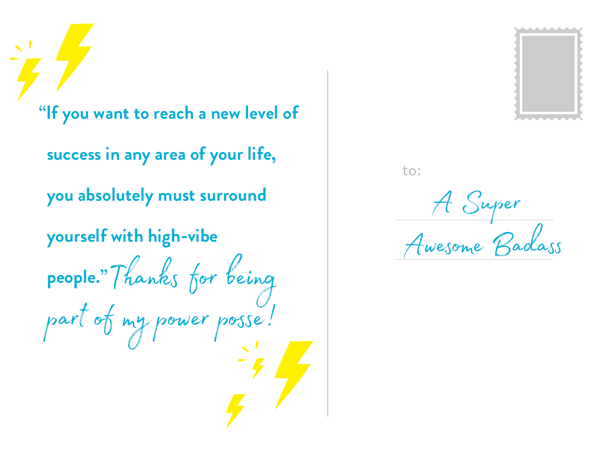 “If you want to reach a new level of
success in any area of your life,
you absolutely must surround
yourself with high-vibe
people.” Thanks for being
part of my power posse!
to:
A Super
Awesome Badass